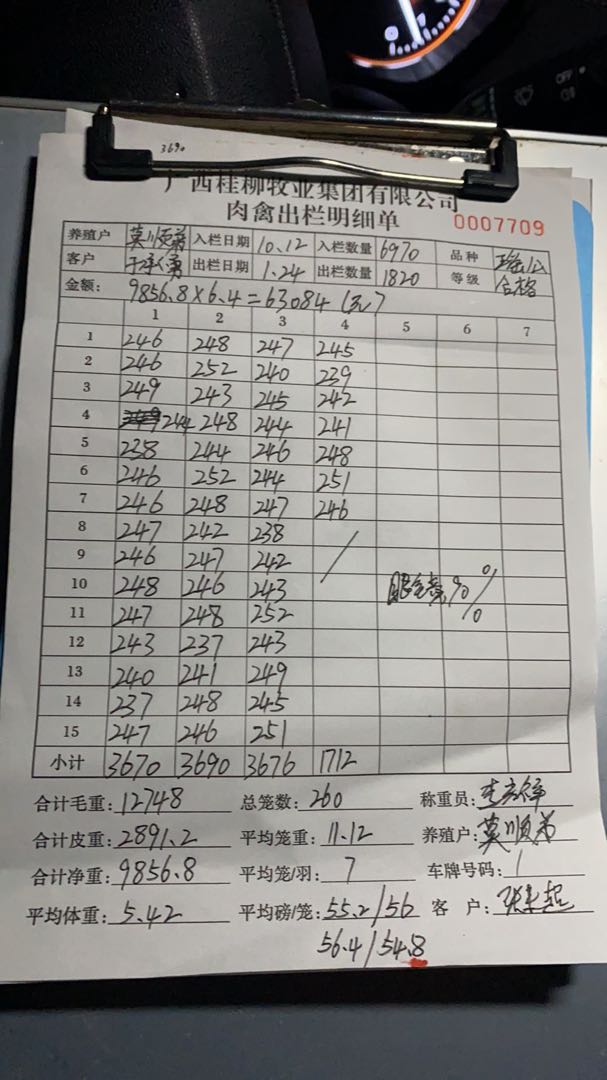 3690
广西桂柳牧业集团有限公司
肉禽出栏明细单 0007709
养殖户 莫顺弟 入栏日期 10.12 入栏数量 6970 品种
客户 出栏日期 1.24 出栏数量 1820 等级 合格
金额: 9856.8×6.4=63084(元)
1 2 3 4 5 6 7
1 246 248 247 245
2 246 252 240 239
3 249 243 245 242
4 244 248 244 241
5 238 244 246 248
6 246 252 244 251
7 246 248 247 246
8 247 242 238
9 246 247 242
10 248 246 243
11 247 248 252
12 243 237 243
13 240 241 249
14 237 248 245
15 247 246 251
小计 3670 3690 3676 1712
合计毛重: 12748 总笼数: 260 称重员:
合计皮重: 2891.2 平均笼重: 11.12 养殖户: 莫顺弟
合计净重: 9856.8 平均笼/羽: 7 车牌号码: 1
平均体重: 5.42 平均磅/笼: 55.2/56 客 户:
56.4/54.8